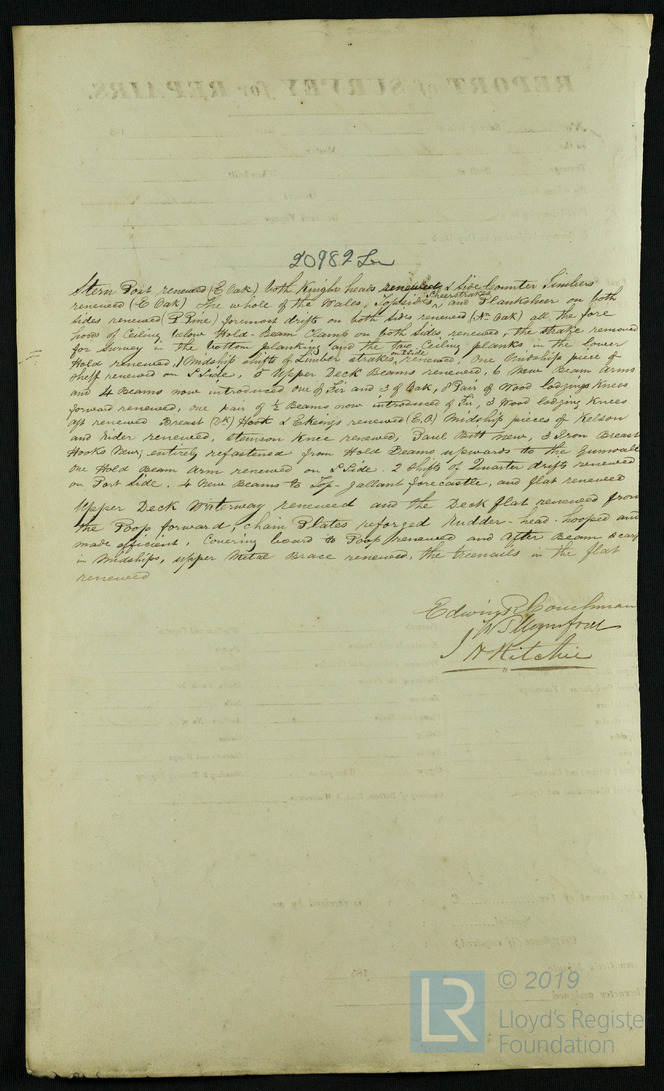 20982 Lon
Stern Post renewed (E Oak) both Knight heads renewed & Side Counter Timbers
renewed (E Oak) The whole of the Wales, Topsides, Sheerstrakes and Planksheer on both
sides renewed (P Pine) foremost drifts on both sides renewed (Oak) all the fore
hoods of Ceiling below Hold Beam Clamp on both sides renewed, the strake removed
for Survey in the bottom planking and the two Ceiling planks in the lower
Hold renewed, 1 Midship shifts of Limber strakes renewed, One Midship piece of
Shelf renewed on S Side, 5 Upper Deck Beams renewed, 6 New Beam Arms
and 4 Beams now introduced one of Fir and 3 of Oak, 8 Pair of Wood lodging Knees
forward renewed, one pair of ½ Beams now introduced of Fir, 3 Wood lodging Knees
aft renewed Breast Hook & Ekeings renewed (E.O) Midship pieces of Kelson
and rider renewed, Stemson Knee renewed, Paul Bitt New, 3 Iron Breast
Hooks New, entirely refastened from Hold Beams upwards to the Gunwale
One Hold Beam Arm renewed on S Side. 2 Shifts of Quarter drifts renewed
on Port Side. 4 New Beams to Top-gallant forecastle, and flat renewed
Upper Deck Waterway renewed and the Deck flat renewed from
the Poop forward, chain Plates reforged rudder-head-hooped and
made efficient, Covering board to Poop renewed and After Beam scarf
in Midships, upper Metal Brace renewed, the treenails in the flat
renewed
Edwin R Couchman
J H Ritchie
REPORT of SURVEY for REPAIRS.
LR
© 2019
Lloyd's Register
Foundation